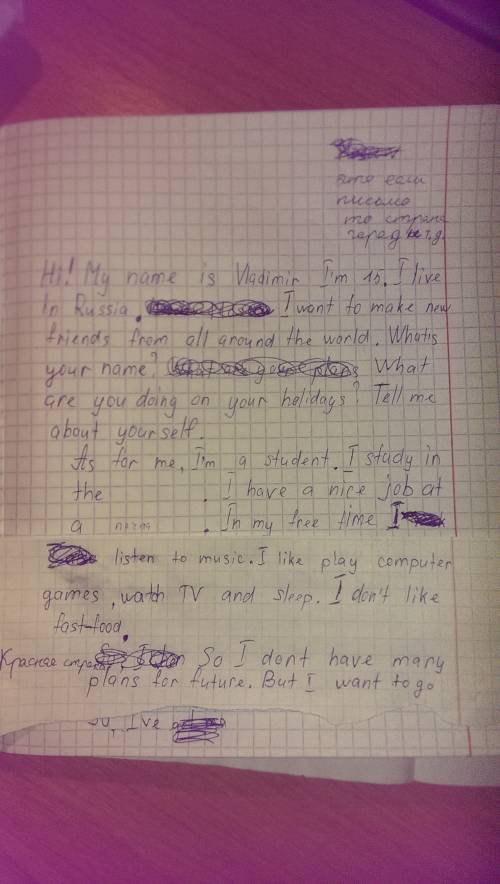 что если
письмо
то страна
город и т.д.
Hi! My name is Vladimir. I'm 15. I live
In Russia. I want to make new
friends from all around the world. What is
your name? What are your plans What
are you doing on your holidays? Tell me
about yourself.
As for me, I'm a student. I study in
the . I have a nice job at
a . In my free time I
listen to music. I like play computer
games, watch TV and sleep. I don't like
fast-food.
Красная So I dont have many
plans for future. But I want to go
I've